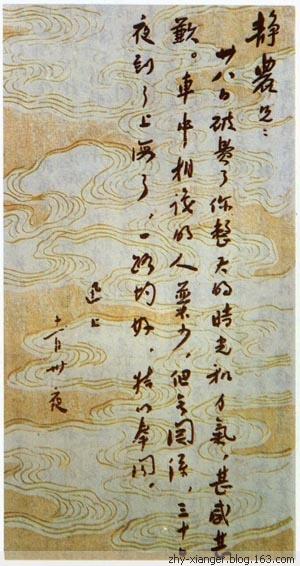 靜農兄：
廿八日破費了你整天的時光和力氣，甚感甚
歉。車中相識的人並不少，但无関係，三十日
夜到了上海了，一路均好，特以奉聞。
迅 上
十一月卅夜
zhy-xianger.blog.163.com